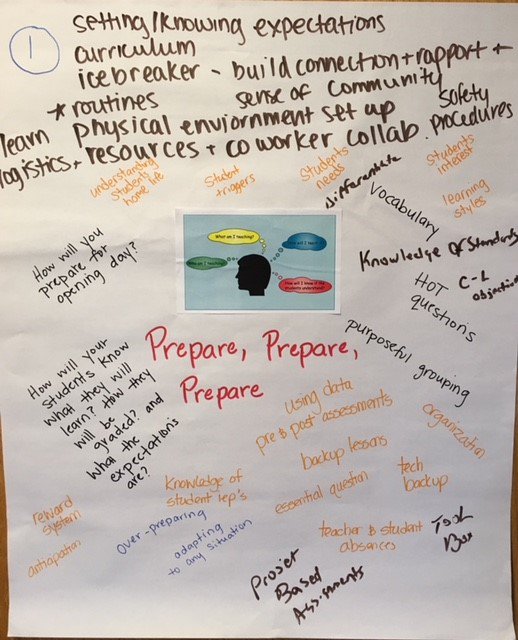 1
setting/knowing expectations
curriculum
icebreaker - build connection + rapport +
sense of community
* routines
physical enviornment set up
learn logistics, + resources + co worker collab.
safety
procedures
understanding
students
home life
student
triggers
students
needs
differentiate
vocabulary
students
interest
learning
styles
How will you
prepare for
opening day?
What am I teaching?
How will I teach it?
Who am I teaching?
How will I know if the
students understand?
Knowledge of Standards
HOT
questions
C-L
objective
purposeful grouping
Prepare, Prepare,
Prepare
How will your
students know
what they will
learn? How they
will be
graded? and
what the
expectations
are?
using data
pre & post assessments
organization
backup lessons
tech
backup
Knowledge of
student iep's
essential question
reward
system
antiapation
over-preparing
adapting
to any situation
teacher & student
absences
Tool
Box
Projet
Based
Assignments